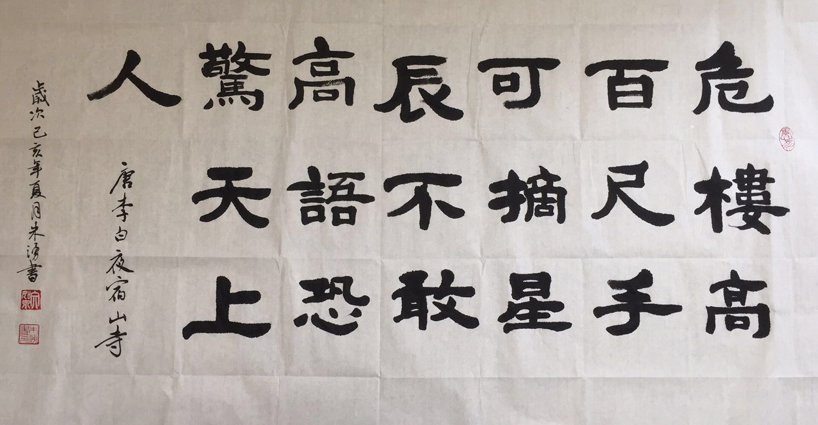 危樓高
百尺手
可摘星
辰不敢
高語恐
驚天上
人
唐李白夜宿山寺
歲次己亥年夏月朱書